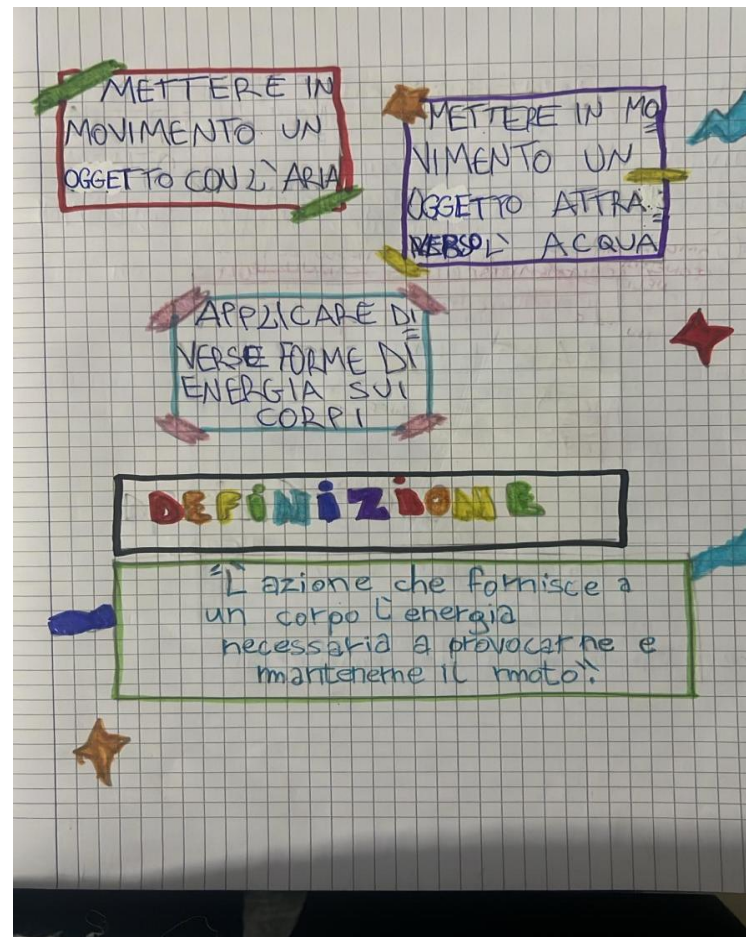 METTERE IN
MOVIMENTO UN
OGGETTO CON L'ARIA
METTERE IN MO
VIMENTO UN
OGGETTO ATTRA
VERSO L' ACQUA
APPLICARE DI
VERSE FORME DI
ENERGIA SUI
CORPI
DEFINIZIONE
"L'azione che fornisce a
un corpo l'energia
necessaria a provocarne e
mantenerne il moto".